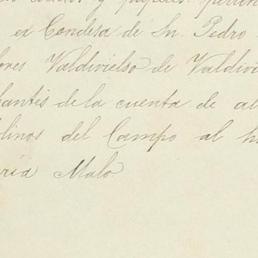 y papeles
ex Condesa de Sn. Pedro
ores Valdivielso de Valdivi
antes de la cuenta de al
linos del Campo al
ria Malo